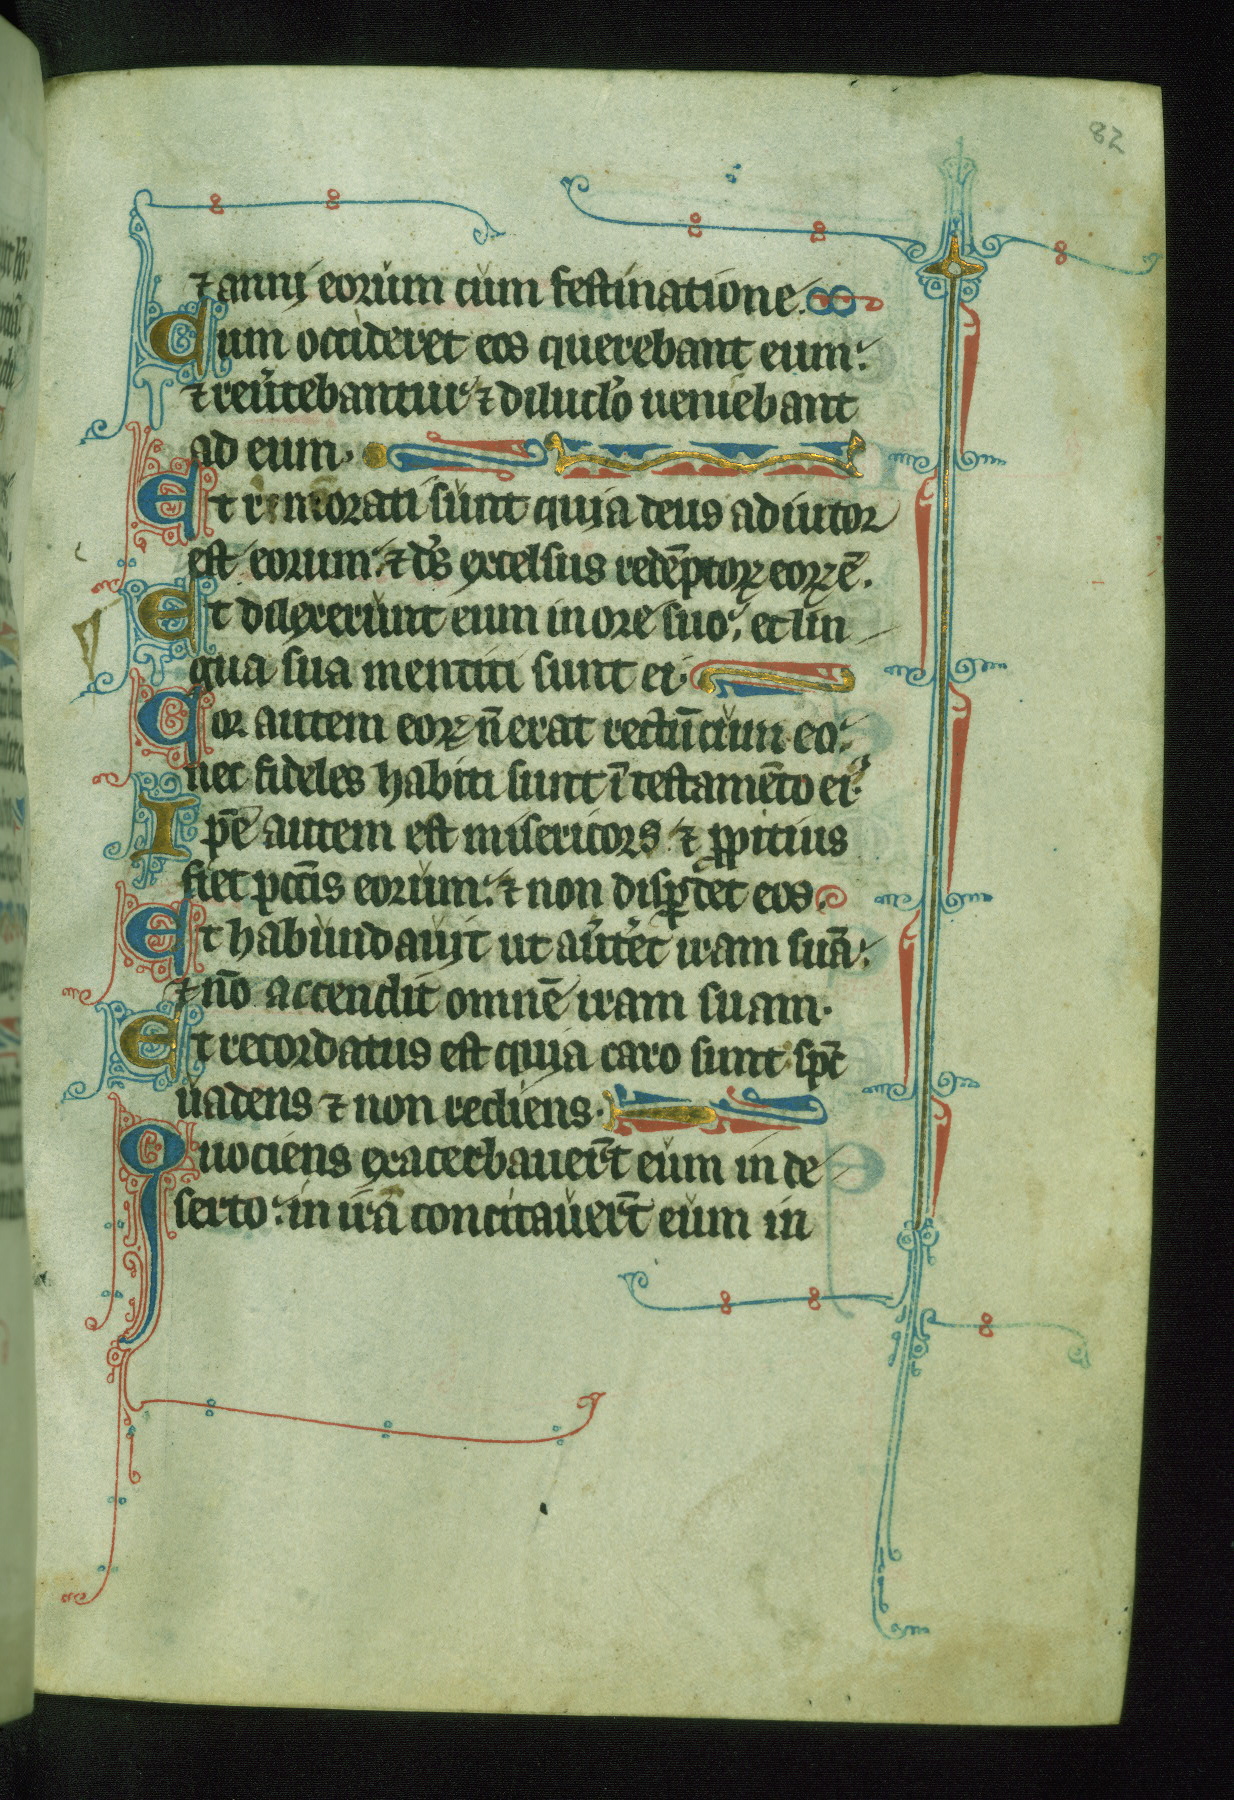 82
⁊ anni eorum cum festinatione.
Cum occideret eos querebant eum:
⁊ reũtebantur: ⁊ diluclo ueniebant
ad eum.
Et rememorati sunt quia deus adiutor
est eorum: ⁊ ds̄ excelsus redēptoꝝ eoꝝ ē.
Et dilexerunt eum in ore suo: et lin
gua sua mentiti sunt ei.
Cor autem eoꝝ ñ erat rectū cum eo:
nec fideles habiti sunt ī testamēto eiꝰ.
Ipē autem est misericors ⁊ ꝓpitius
fiet pctīs eorum: ⁊ non disꝑdet eos.
Et habundauit ut aũtet iram suā:
⁊ nō accendit omnē iram suam.
Et recordatus est quia caro sunt spc̄
uadens ⁊ non rediens.
Quociens exacerbauer̄t eum in de
serto: in irā concitauer̄t eum in